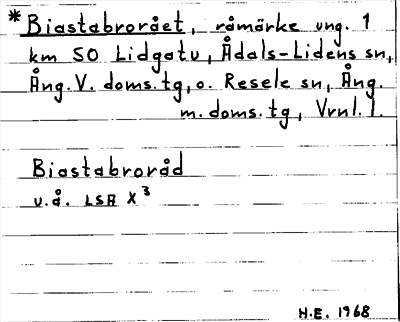 * Biastabrorået, råmärke ung. 1
km SO Lidgatu, Ådals-Lidens sn,
Ång. V. doms. tg, o. Resele sn, Ång.
m. doms. tg, Vrnl. l.
Biastabroråd
u.å. LSA X³
H.E. 1968